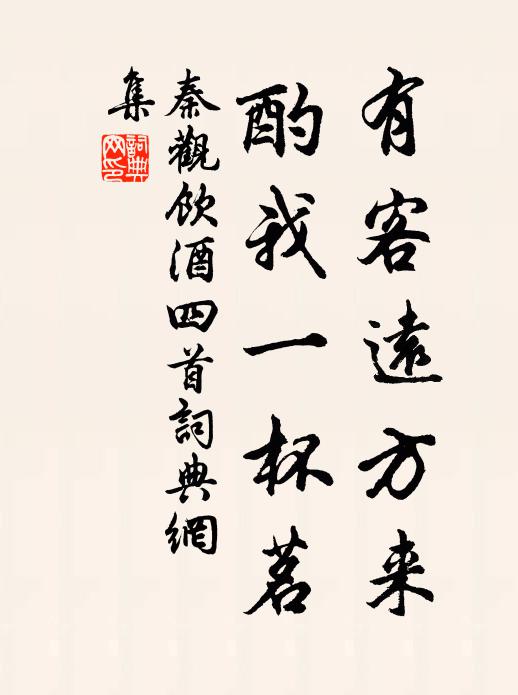 有客遠方来
酌我一杯茗
秦觀飲酒四首詞典網
集
詞典
网印